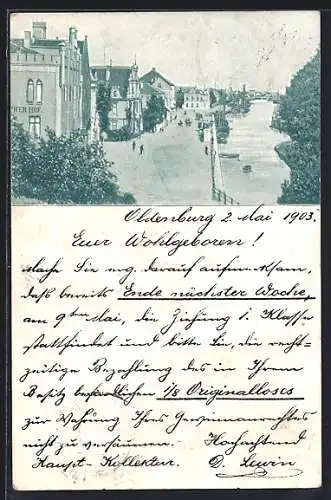 HER HOF.
Oldenburg 2 Mai 1903.
Euer Wohlgeboren!
Mache Sie erg. darauf aufmerksam,
daß bereits Ende nächster Woche,
am 9ten Mai, die Ziehung 1. Klasse
stattfindet und bitte Sie, die recht-
zeitige Bezahlung des in Ihrem
Besitz befindlichen 1/8 Originalloses
zur Wahrung Ihres Gewinnanrechtes
nicht zu versäumen. Hochachtend
Haupt-Kollekteur. D. Lewin